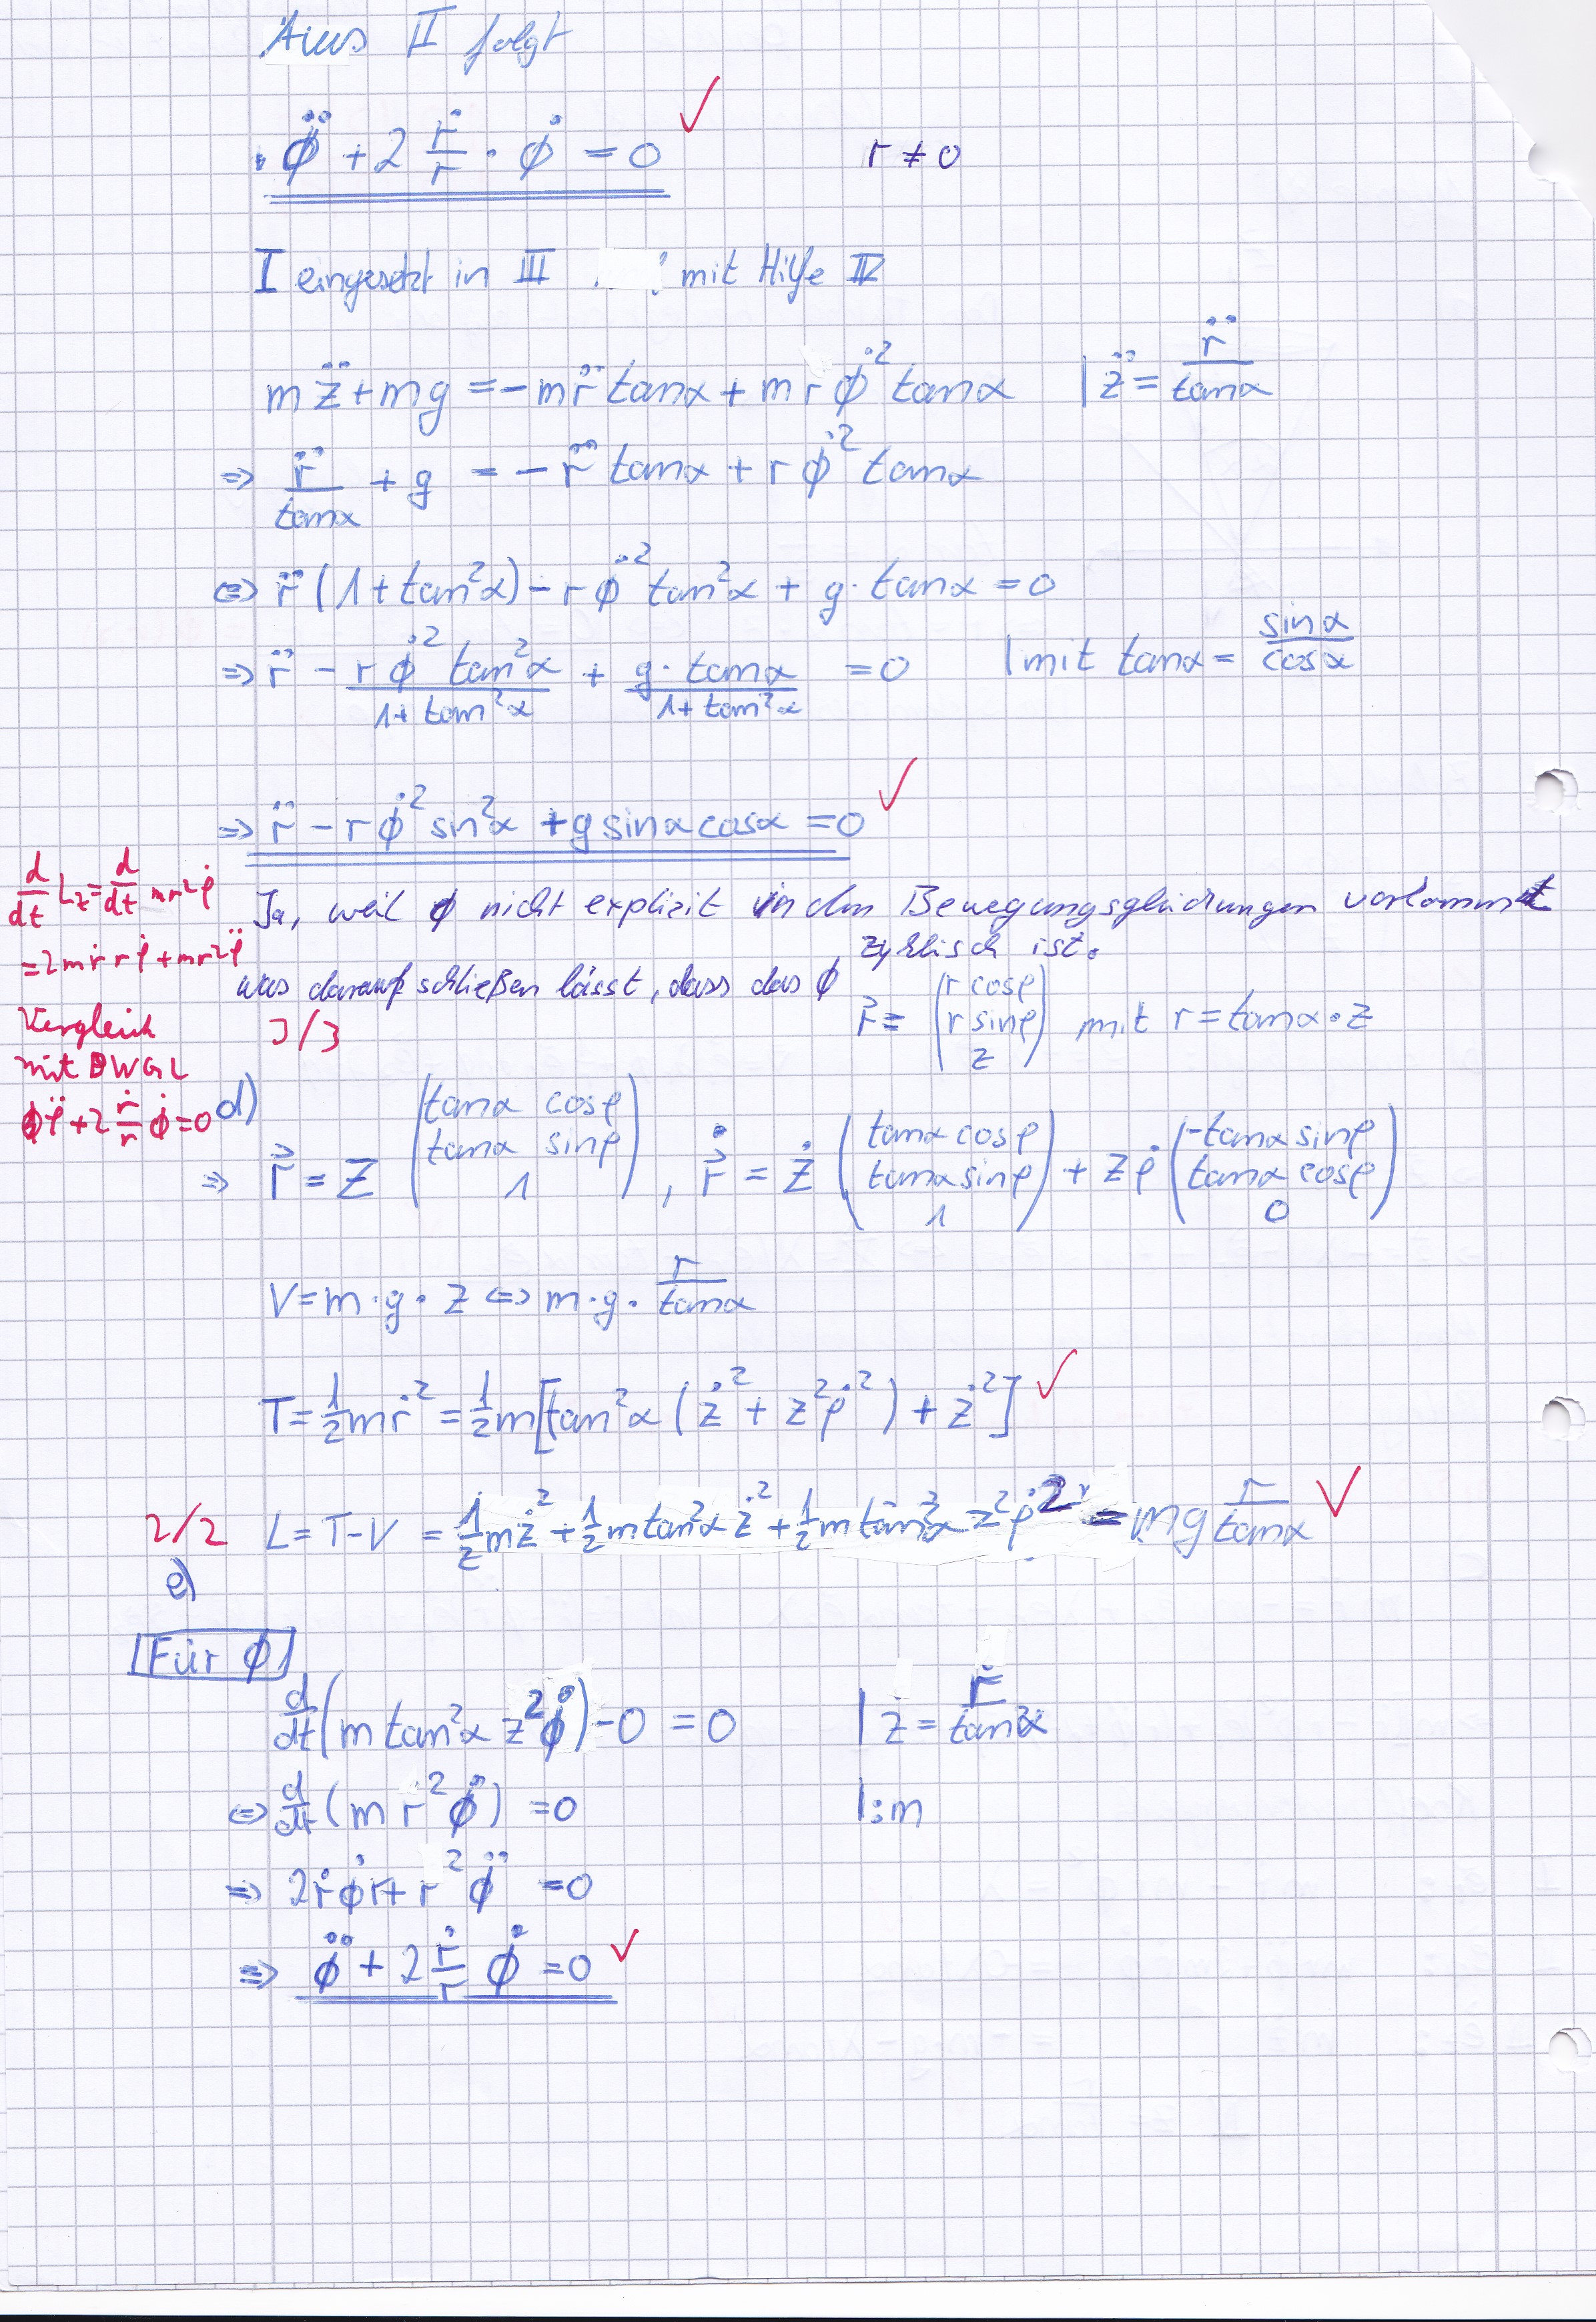 Aus II folgt
φ̈ + 2 ṙ/r · φ̇ = 0 ✓ r ≠ 0
I eingesetzt in III mit Hilfe IV
m z̈ + mg = - m r̈ tanα + m r φ̇² tanα | z̈ = r̈/tanα
⇒ r̈/tanα + g = - r̈ tanα + r φ̇² tanα
⇔ r̈ (1 + tan²α) - r φ̇² tan²α + g · tanα = 0
⇒ r̈ - r φ̇² tan²α/(1+tan²α) + g · tanα/(1+tan²α) = 0 | mit tanα = sinα/cosα
⇒ r̈ - r φ̇² sin²α + g sinα cosα = 0 ✓
d/dt Lz = d/dt mr²φ̇
= 2mṙrφ̇ + mr²φ̈
Vergleich
mit BWGL
φ̈ + 2 ṙ/r φ̇ = 0
Ja, weil φ nicht explizit in den Bewegungsgleichungen vorkommt
was darauf schließen lässt, dass das φ zyklisch ist.
3/3
r⃗ = (r cosφ, r sinφ, z) mit r = tanα · z
d)
⇒ r⃗ = z (tanα cosφ, tanα sinφ, 1), r⃗̇ = ż (tanα cosφ, tanα sinφ, 1) + zφ̇ (-tanα sinφ, tanα cosφ, 0)
V = m · g · z ⇔ m · g · r/tanα
T = 1/2 mṙ² = 1/2 m[tan²α (ż² + z²φ̇²) + ż²] ✓
2/2 L = T-V = 1/2 mż² + 1/2 m tan²α ż² + 1/2 m tan²α z²φ̇² - mg r/tanα ✓
e)
Für φ
d/dt (m tan²α z²φ̇) - 0 = 0 | z = r/tanα
⇔ d/dt (m r² φ̇) = 0 | :m
⇒ 2ṙφ̇r + r² φ̈ = 0
⇒ φ̈ + 2 ṙ/r φ̇ = 0 ✓